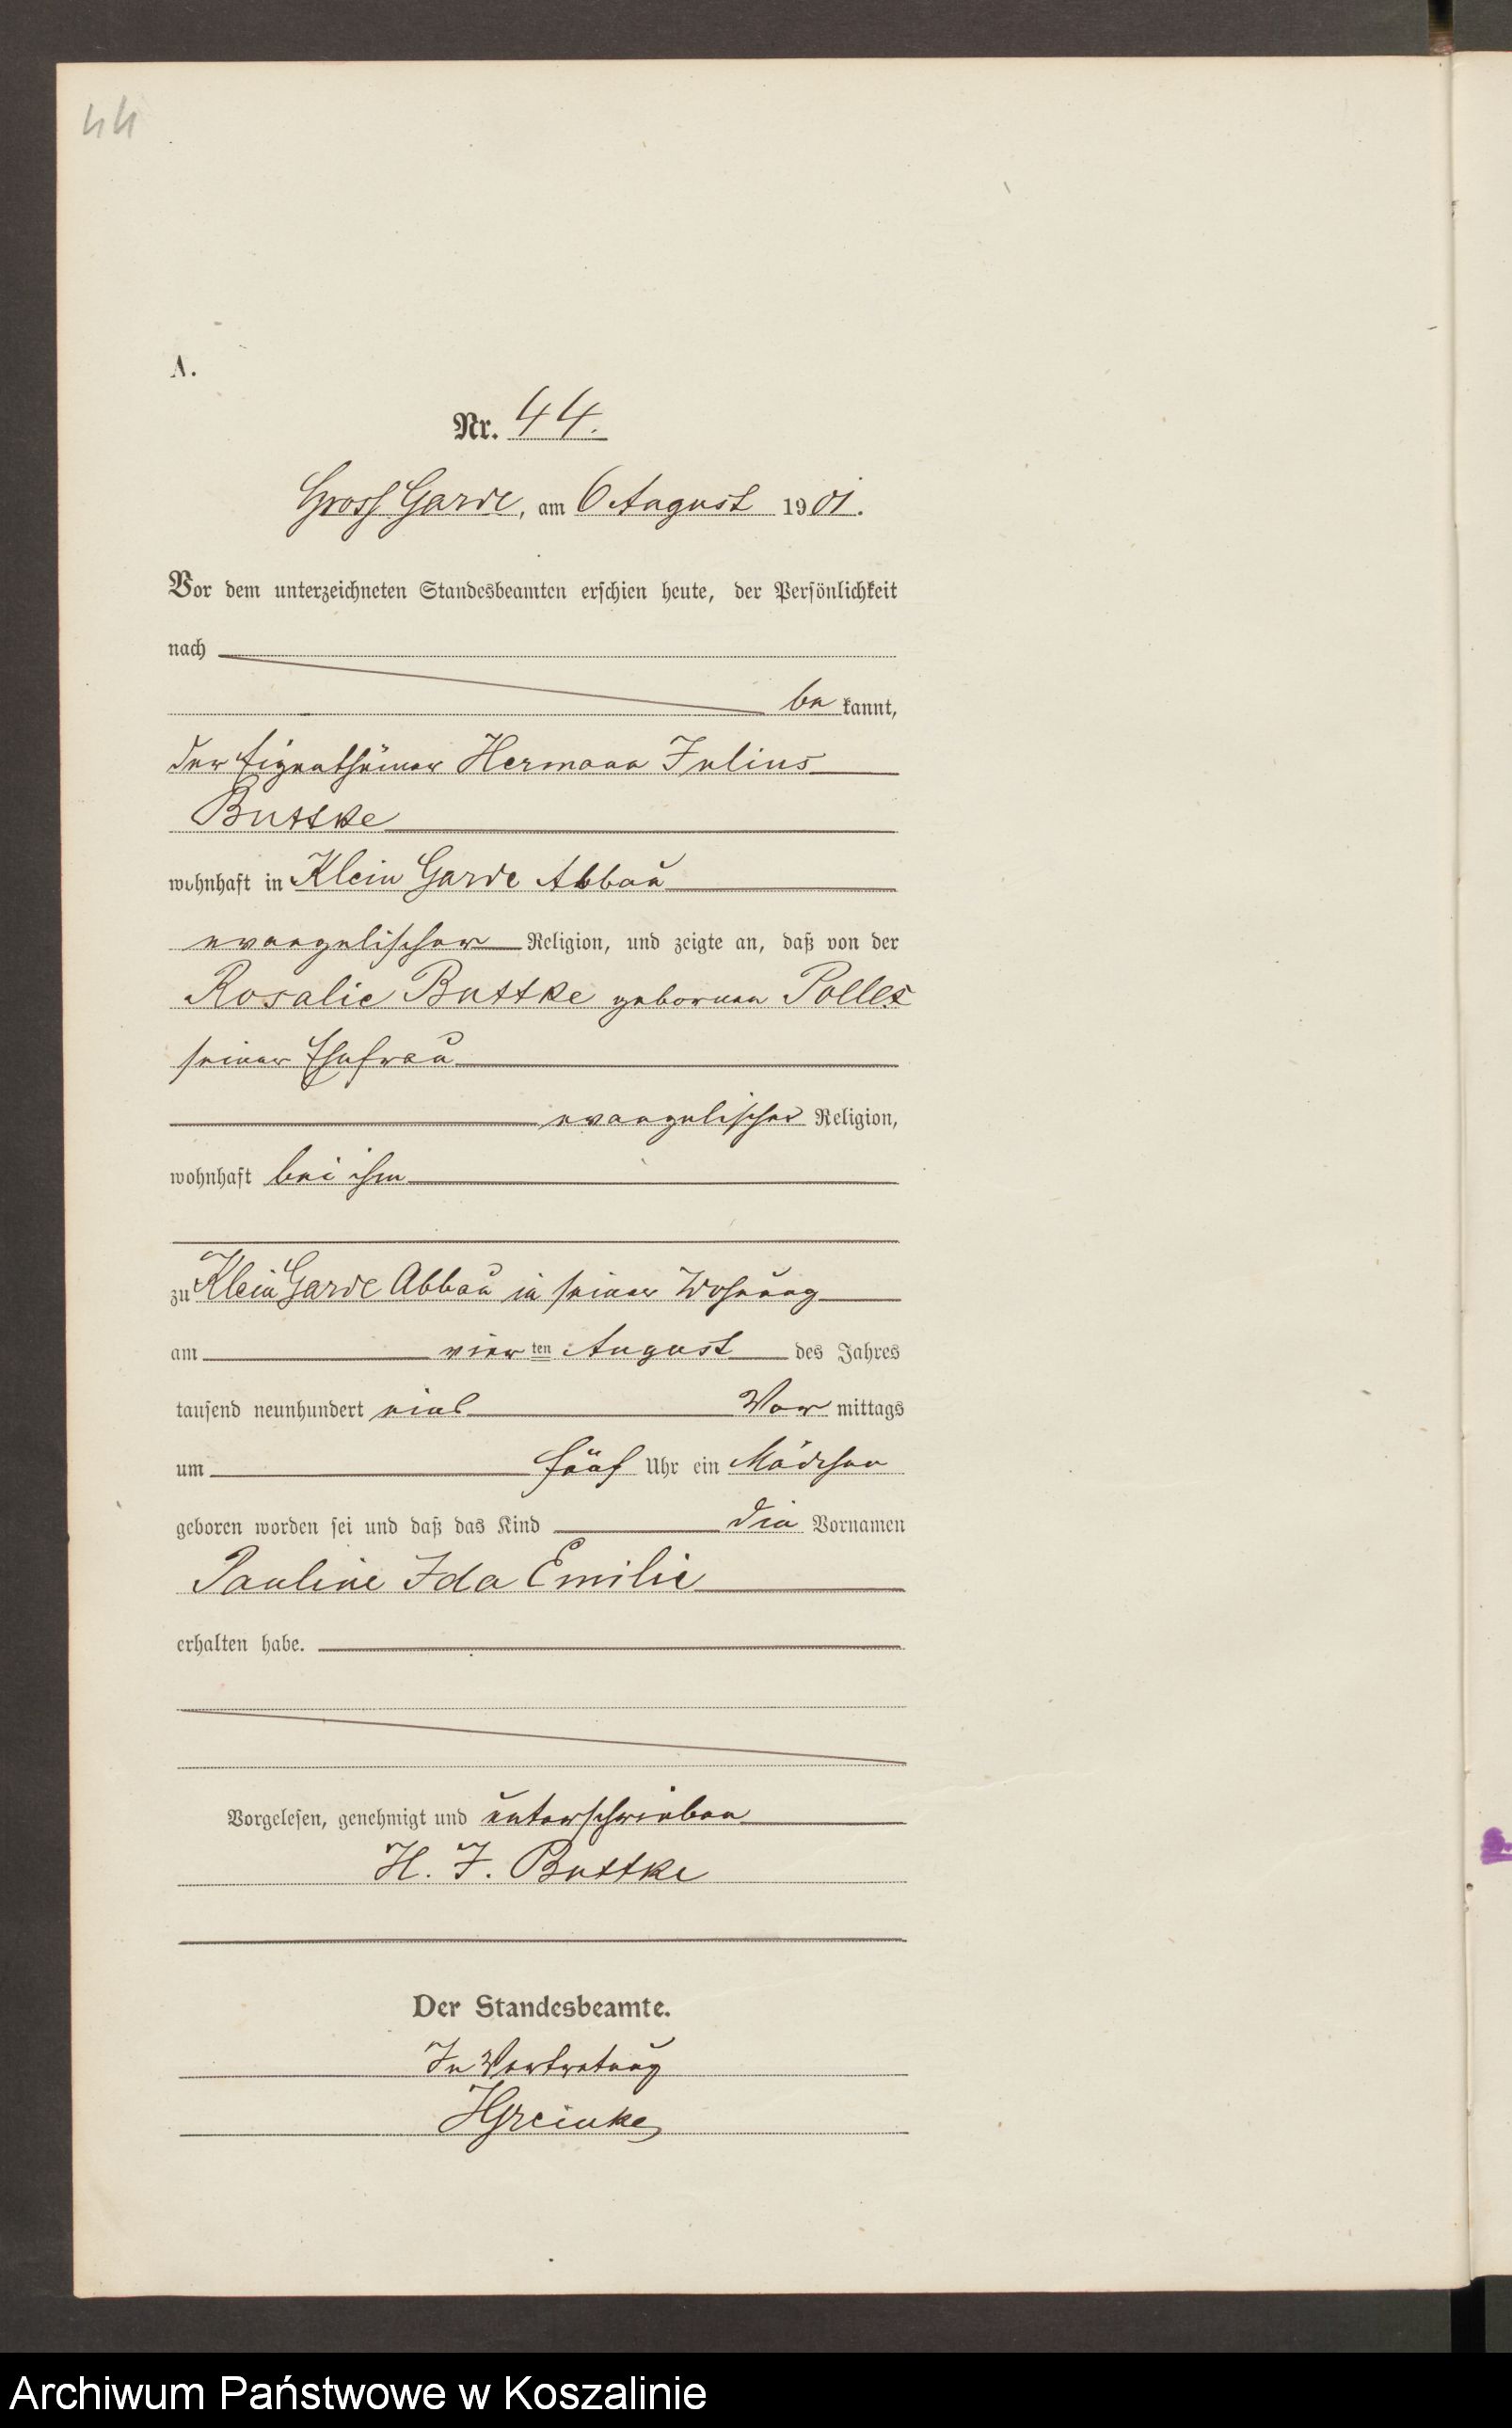 44
A.
Nr. 44.
Gross Garde, am 6 August 1901.
Vor dem unterzeichneten Standesbeamten erschien heute, der Persönlichkeit
nach
be kannt,
der Eigenthümer Hermann Julius
Buttke
wohnhaft in Klein Garde Abbau
evangelischer Religion, und zeigte an, daß von der
Rosalie Buttke geborenen Pollex
seiner Ehefrau
evangelischer Religion,
wohnhaft bei ihm
zu Klein Garde Abbau in seiner Wohnung
am vier ten August des Jahres
tausend neunhundert eins Vor mittags
um fünf Uhr ein Mädchen
geboren worden sei und daß das Kind die Vornamen
Pauline Ida Emilie
erhalten habe.
Vorgelesen, genehmigt und unterschrieben
H. J. Buttke
Der Standesbeamte.
In Vertretung
HGreinke
Archiwum Państwowe w Koszalinie